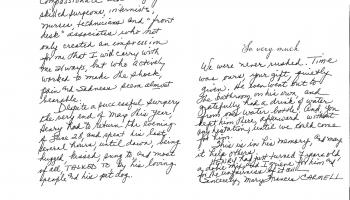 skilled surgeons, internists,
nurses, technicians and "front
desk" associates who not
only created an impression
for me that I will carry with
me always, but who actively
worked to make the shock,
pain and sadness seem almost
bearable.
Despite a successful surgery
the very end of May this year,
Henry had to return the evening
of June 21 and spent his last
several hours, until dawn, being
hugged, kissed, sung to, and most
of all TALKED TO by his loving
people and his pet dog.
So very much
We were never rushed. Time
was ours, your gift, quietly
given. He even went out to
the bathroom on his own, and
gratefully had a drink of water
from my water bottle. And, you
kept him there, afterward, without
any hesitation, until we could come
for him.
This is in his memory, and may
it help others!
HENRY had just turned 7 years old
Sincerely, Mary Frances CARNOLL